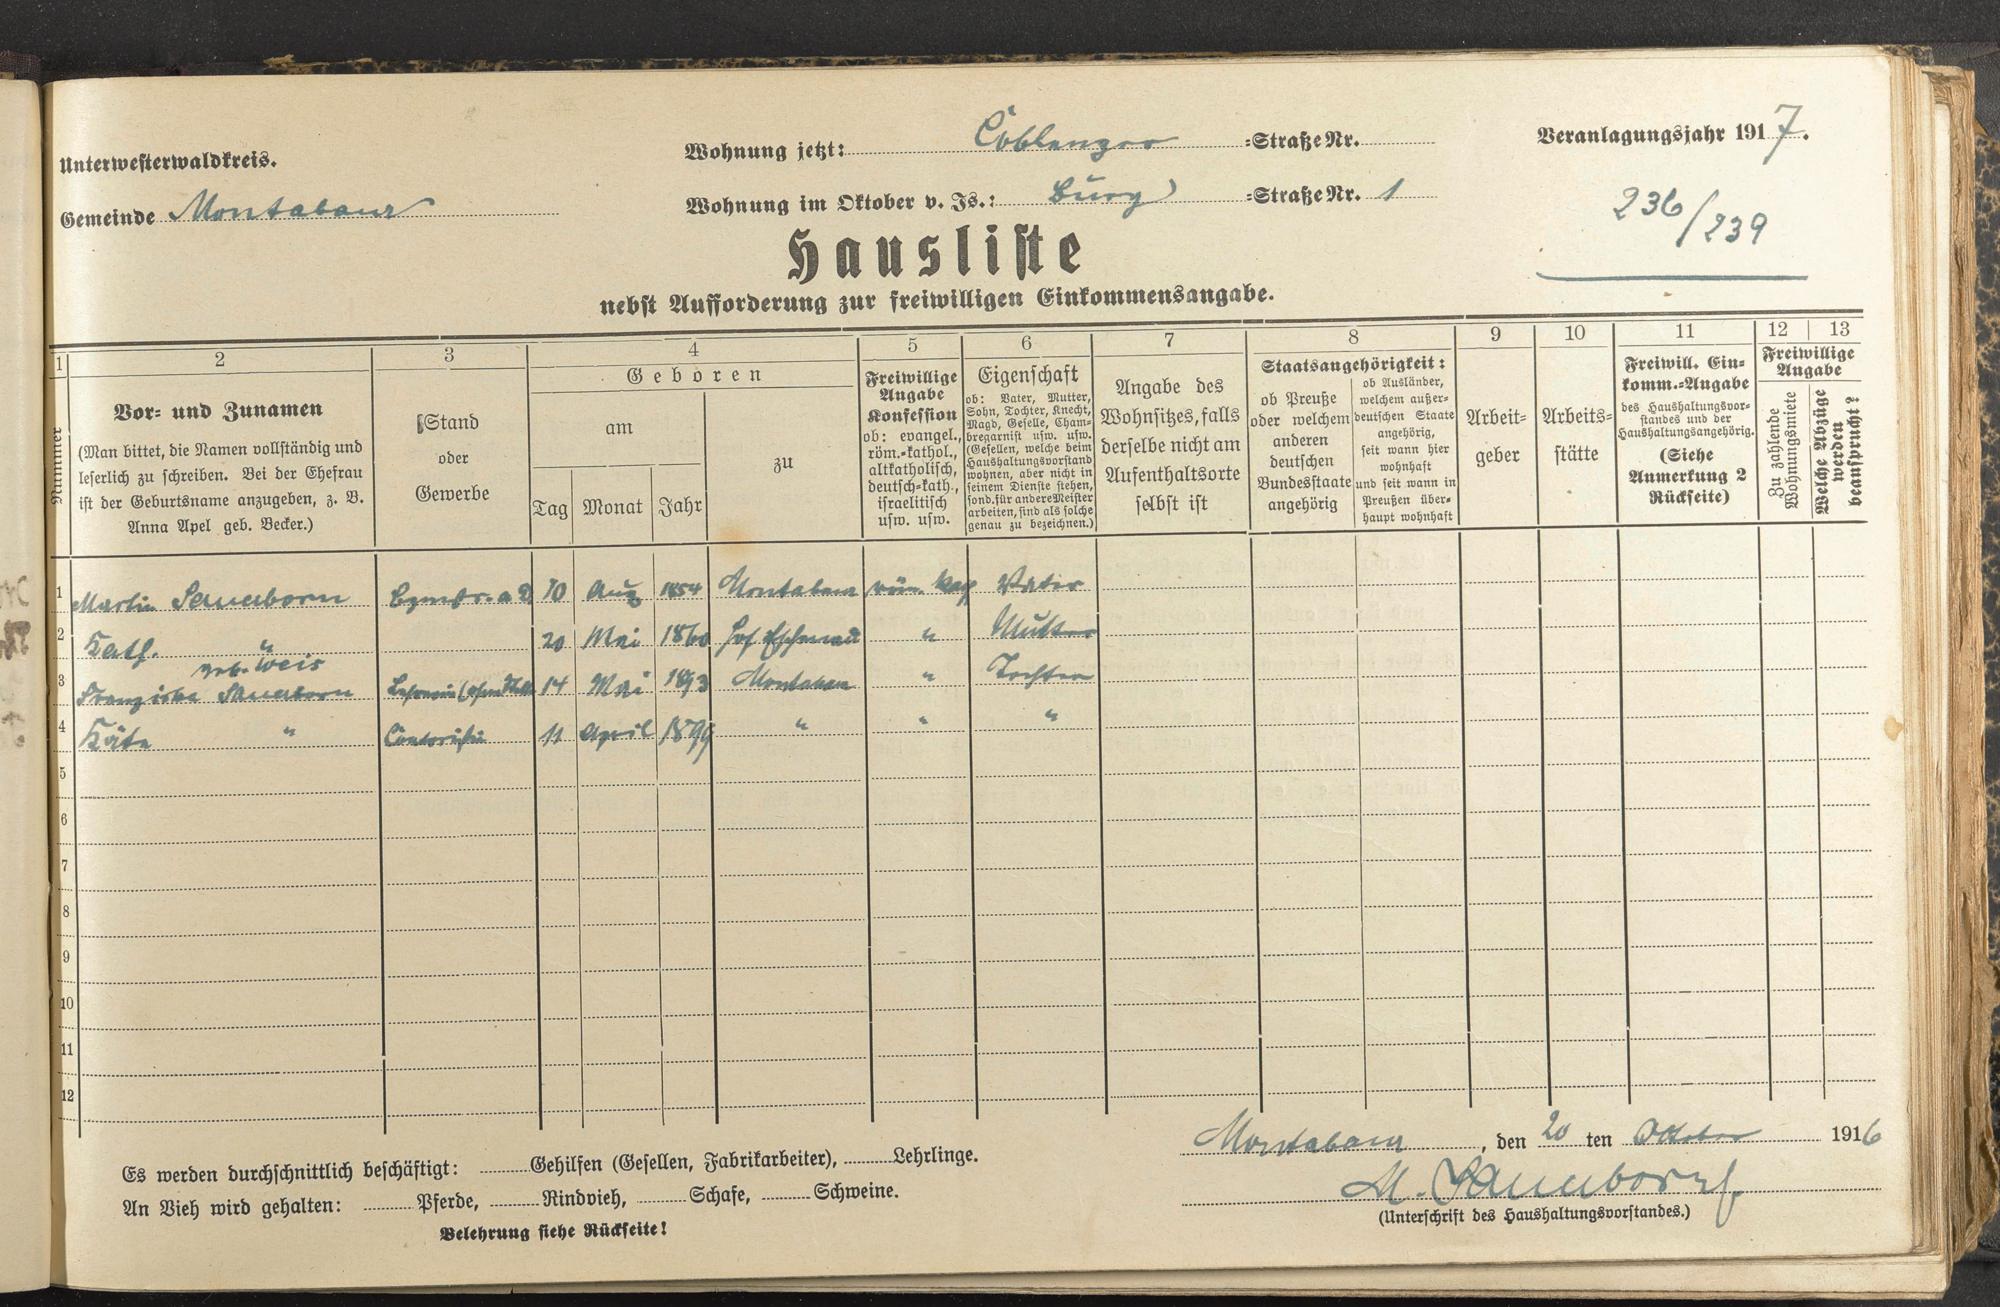 Unterwesterwaldkreis.
Gemeinde Montabaur
Wohnung jetzt: Coblenzer =Straße Nr.
Wohnung im Oktober v. Js.: Burg =Straße Nr. 1
Veranlagungsjahr 1917.
236/239
Hausliste
nebst Aufforderung zur freiwilligen Einkommensangabe.
1 2 3 4 5 6 7 8 9 10 11 12 13
Nummer
Vor- und Zunamen
(Man bittet, die Namen vollständig und
leserlich zu schreiben. Bei der Ehefrau
ist der Geburtsname anzugeben, z. B.
Anna Apel geb. Becker.)
Stand
oder
Gewerbe
Geboren
am
Tag Monat Jahr
zu
Freiwillige
Angabe
Konfession
ob: evangel.,
röm.-kathol.,
altkatholisch,
deutsch-kath.,
israelitisch
usw. usw.
Eigenschaft
ob: Vater, Mutter,
Sohn, Tochter, Knecht,
Magd, Geselle, Cham-
bregarnist usw. usw.
(Gesellen, welche beim
Haushaltungsvorstand
wohnen, aber nicht in
seinem Dienste stehen,
sond. für andere Meister
arbeiten, sind als solche
genau zu bezeichnen.)
Angabe des
Wohnsitzes, falls
derselbe nicht am
Aufenthaltsorte
selbst ist
Staatsangehörigkeit:
ob Preuße
oder welchem
anderen
deutschen
Bundesstaate
angehörig
ob Ausländer,
welchem außer-
deutschen Staate
angehörig,
seit wann hier
wohnhaft
und seit wann in
Preußen über-
haupt wohnhaft
Arbeit-
geber
Arbeits-
stätte
Freiwill. Ein-
komm.-Angabe
des Haushaltungsvor-
standes und der
Haushaltungsangehörig.
(Siehe
Anmerkung 2
Rückseite)
Freiwillige
Angabe
Zu zahlende
Wohnungsmiete
Welche Abzüge
werden
beansprucht?
1 Martin Sauerborn a. D. 10 Aug 1854 Montabaur röm. kath Vater
2 Kath. " 20 Mai 1860 Hof Eschenau " Mutter
geb. Weis
3 Franziska Sauerborn Lehrerin 14 Mai 1893 Montabaur " Tochter
4 Käte " Contoristin 11 April 1899 " " "
5
6
7
8
9
10
11
12
Es werden durchschnittlich beschäftigt: Gehilfen (Gesellen, Fabrikarbeiter), Lehrlinge.
An Vieh wird gehalten: Pferde, Rindvieh, Schafe, Schweine.
Belehrung siehe Rückseite!
Montabaur, den 20 ten Oktober 1916
M. Sauerborn
(Unterschrift des Haushaltungsvorstandes.)